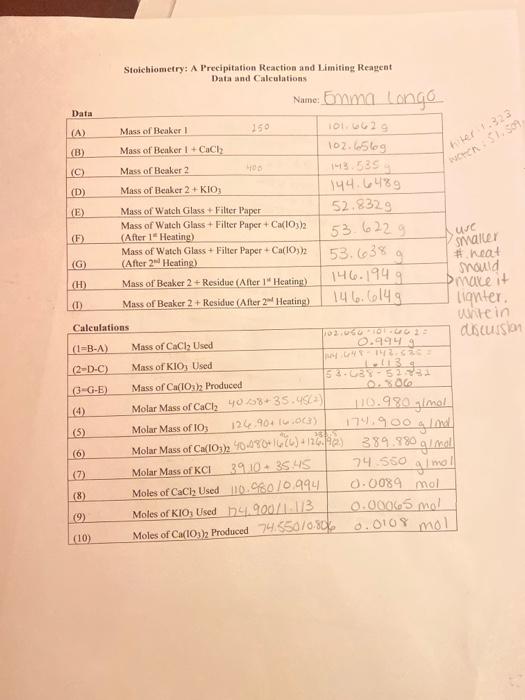 Stoichiometry: A Precipitation Reaction and Limiting Reagent
Data and Calculations
Name: Emma Longo
Data
filter: 1.323
watch: 51.509
(A) Mass of Beaker 1 250 101.662 g
(B) Mass of Beaker 1 + CaCl₂ 102.656g
(C) Mass of Beaker 2 400 143.535 g
(D) Mass of Beaker 2 + KIO₃ 144.648g
(E) Mass of Watch Glass + Filter Paper 52.832g
(F) Mass of Watch Glass + Filter Paper + Ca(IO₃)₂ (After 1st Heating) 53.622 g
(G) Mass of Watch Glass + Filter Paper + Ca(IO₃)₂ (After 2nd Heating) 53.638 g
(H) Mass of Beaker 2 + Residue (After 1st Heating) 146.194 g
(I) Mass of Beaker 2 + Residue (After 2nd Heating) 146.614g
use
smaller
#. heat
should
make it
lighter.
write in
discussion
Calculations
(1=B-A) Mass of CaCl₂ Used 102.656-101.662= 0.994 g
(2=D-C) Mass of KIO₃ Used 144.648-143.535= 1.113 g
(3=G-E) Mass of Ca(IO₃)₂ Produced 53.638-52.832 0.806
(4) Molar Mass of CaCl₂ 40.08+35.45(2) 110.980 g/mol
(5) Molar Mass of IO₃ 126.90+16.0(3) 174.900 g/mol
(6) Molar Mass of Ca(IO₃)₂ 40.080+16(6)+126.9(2) 389.880 g/mol
(7) Molar Mass of KCl 39.10+35.45 74.550 g/mol
(8) Moles of CaCl₂ Used 110.980/0.994 0.0089 mol
(9) Moles of KIO₃ Used 174.900/1.113 0.00065 mol
(10) Moles of Ca(IO₃)₂ Produced 74.550/0.806 0.0108 mol